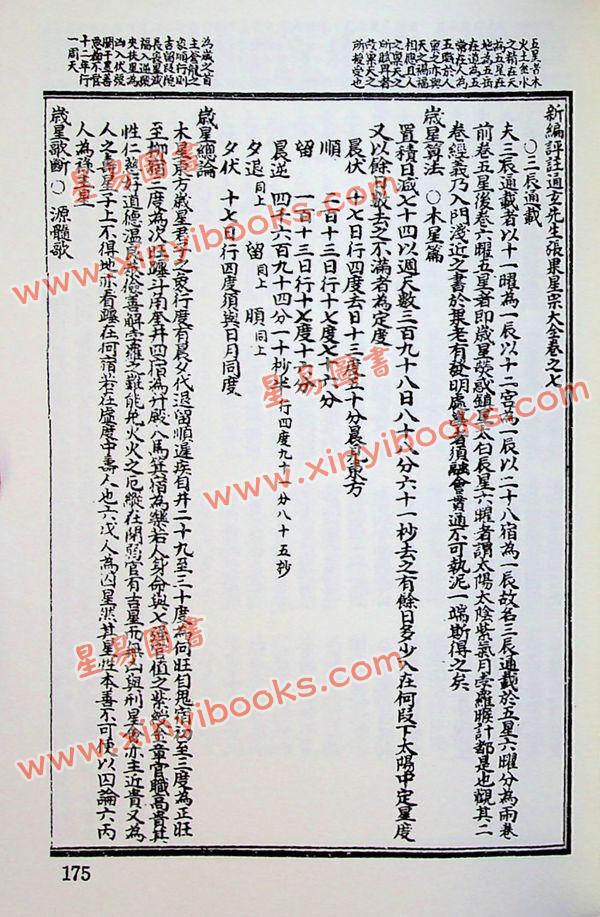 五星者木
火土金水
之精在天
為五星在
地為五岳
在道為五
常在人為
五臟於人
為歲之首
主蒼龍之
一周天
新編評註通玄先生張果星宗大全卷之七
〇三辰通載
夫三辰通載者以十一曜為一辰以十二宮為一辰以二十八宿為一辰故名三辰通載於五星六曜分為兩卷
前卷五星後卷六曜五星者即歲星熒惑鎮星太白辰星六曜者謂太陽太陰紫氣月孛羅睺計都是也觀其二
卷經義乃入門淺近之書於果老有發明處學者須融會貫通不可執泥一端斯得之矣
歲星算法 〇木星篇
置積日減七十四以週天數三百九十八日八十八分六十一秒去之有餘日多少入在何段下太陽中定星度
又以餘日數去之不滿者為定度
晨伏 十七日行四度去日十三度五十分晨見東方
順 一百十三日行十七度七十六分
留 一百十三日行十七度十六分
晨逆 四十六百九十四分一十秒半行四度九十一分八十五秒
夕退同上 留同上 順同上
夕伏 十七日行四度須與日月同度
歲星總論
木星東方歲星君子之象行度有晨夕伐退留順遲疾自井二十九至三十度為向旺自鬼宿初至三度為正旺
至柳宿二度為次旺躔斗角奎井四宿為升殿入馬箕宿為樂若人身命與七強宮值之紫綬金章官職高貴其
性仁慈好道德溫良恭儉善解孛羅之難能免火火之厄縱在閒弱宮有吉星而無凶與刑星會亦主近貴又為
人之壽星子上不得地亦看躔在何宿若在虛度中壽人也六戊人為囚星然其星性本善不可便以囚論六丙
人為祿主星
歲星歌斷〇 源髓歌
175
星易圖書
www.xinyibooks.com
星易圖書
www.xinyibooks.com
星易圖書
www.xinyibooks.com